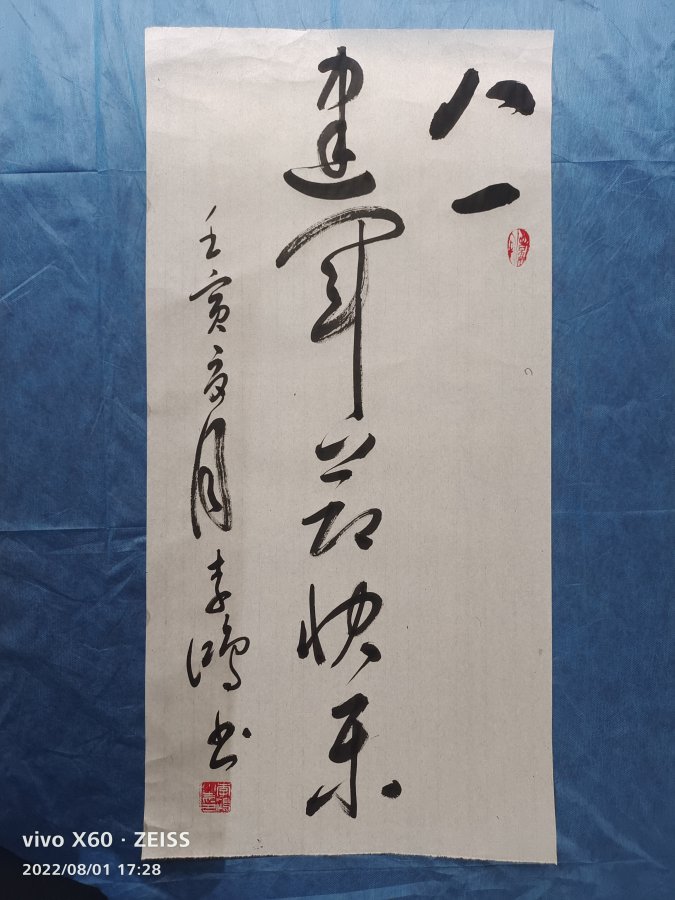 八一
建军节快乐
壬寅夏月李鸿书
vivo X60 · ZEISS
2022/08/01 17:28